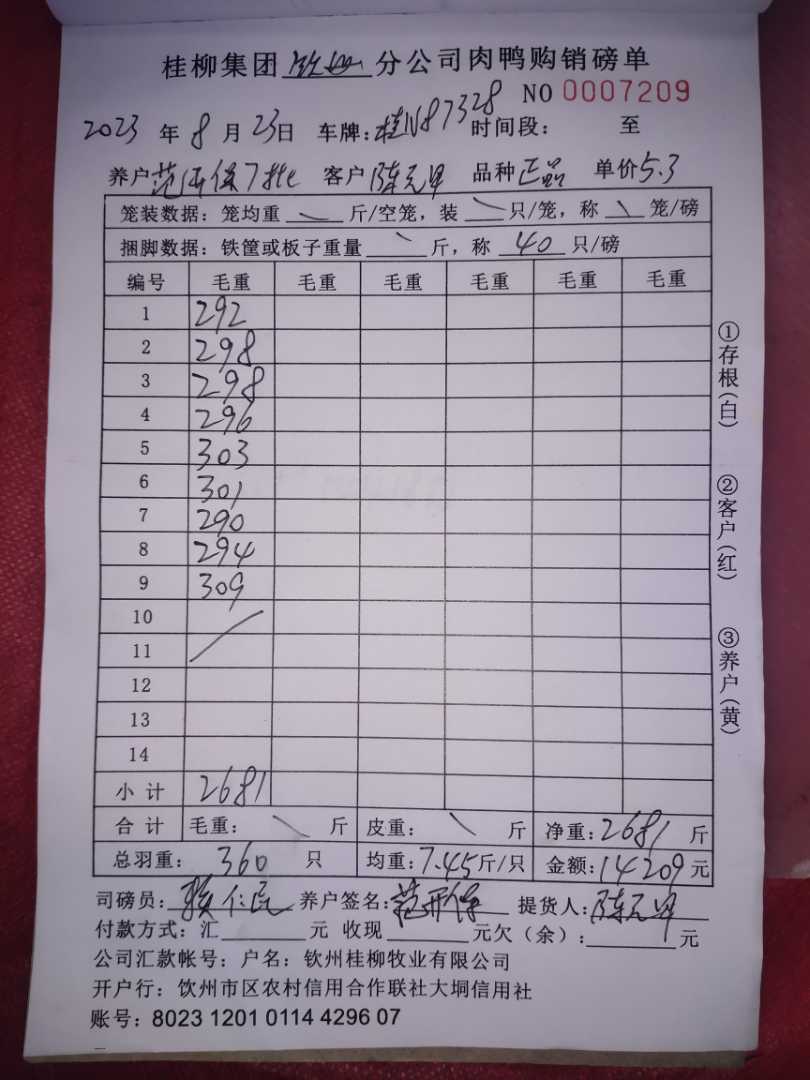 桂柳集团 钦州 分公司肉鸭购销磅单
NO 0007209
2023 年 8 月 23 日 车牌:桂N87328 时间段: 至
养户 范开保 客户 陈元早 品种 正品 单价 5.3
笼装数据: 笼均重 斤/空笼, 装 只/笼, 称 笼/磅
捆脚数据: 铁筐或板子重量 斤, 称 40 只/磅
编号 毛重 毛重 毛重 毛重 毛重 毛重
1 292
2 298
3 298
4 296
5 303
6 301
7 290
8 294
9 309
10
11
12
13
14
小计 2681
合计 毛重: 斤 皮重: 斤 净重: 2681 斤
总羽重: 360 只 均重: 7.45 斤/只 金额: 14209 元
司磅员: 养户签名: 范开保 提货人: 陈元早
付款方式: 汇 元 收现 元欠(余): 元
公司汇款帐号: 户名: 钦州桂柳牧业有限公司
开户行: 饮州市区农村信用合作联社大垌信用社
账号: 8023 1201 0114 4296 07
①存根(白)
②客户(红)
③养户(黄)